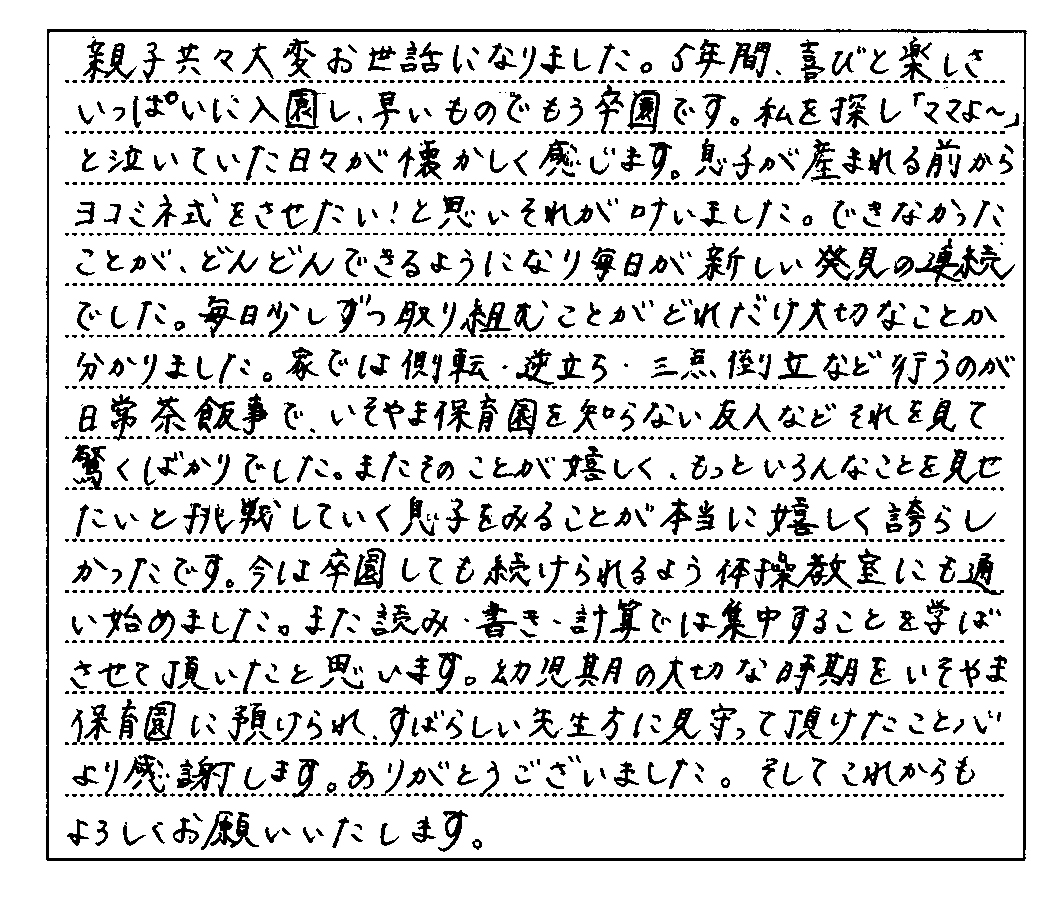 親子共々大変お世話になりました。5年間、喜びと楽しさ
いっぱいに入園し、早いものでもう卒園です。私を探し「ママよ〜」
と泣いていた日々が懐かしく感じます。息子が産まれる前から
ヨコミネ式をさせたい!と思いそれが叶いました。できなかった
ことが、どんどんできるようになり毎日が新しい発見の連続
でした。毎日少しずつ取り組むことがどれだけ大切なことか
分かりました。家では側転・逆立ち・三点倒立など行うのが
日常茶飯事で、いそやま保育園を知らない友人などそれを見て
驚くばかりでした。またそのことが嬉しく、もっといろんなことを見せ
たいと挑戦していく息子をみることが本当に嬉しく誇らし
かったです。今は卒園しても続けられるよう体操教室にも通
い始めました。また読み・書き・計算では集中することを学ば
させて頂いたと思います。幼児期の大切な時期をいそやま
保育園に預けられ、すばらしい先生方に見守って頂けたこと心
より感謝します。ありがとうございました。そしてこれからも
よろしくお願いいたします。